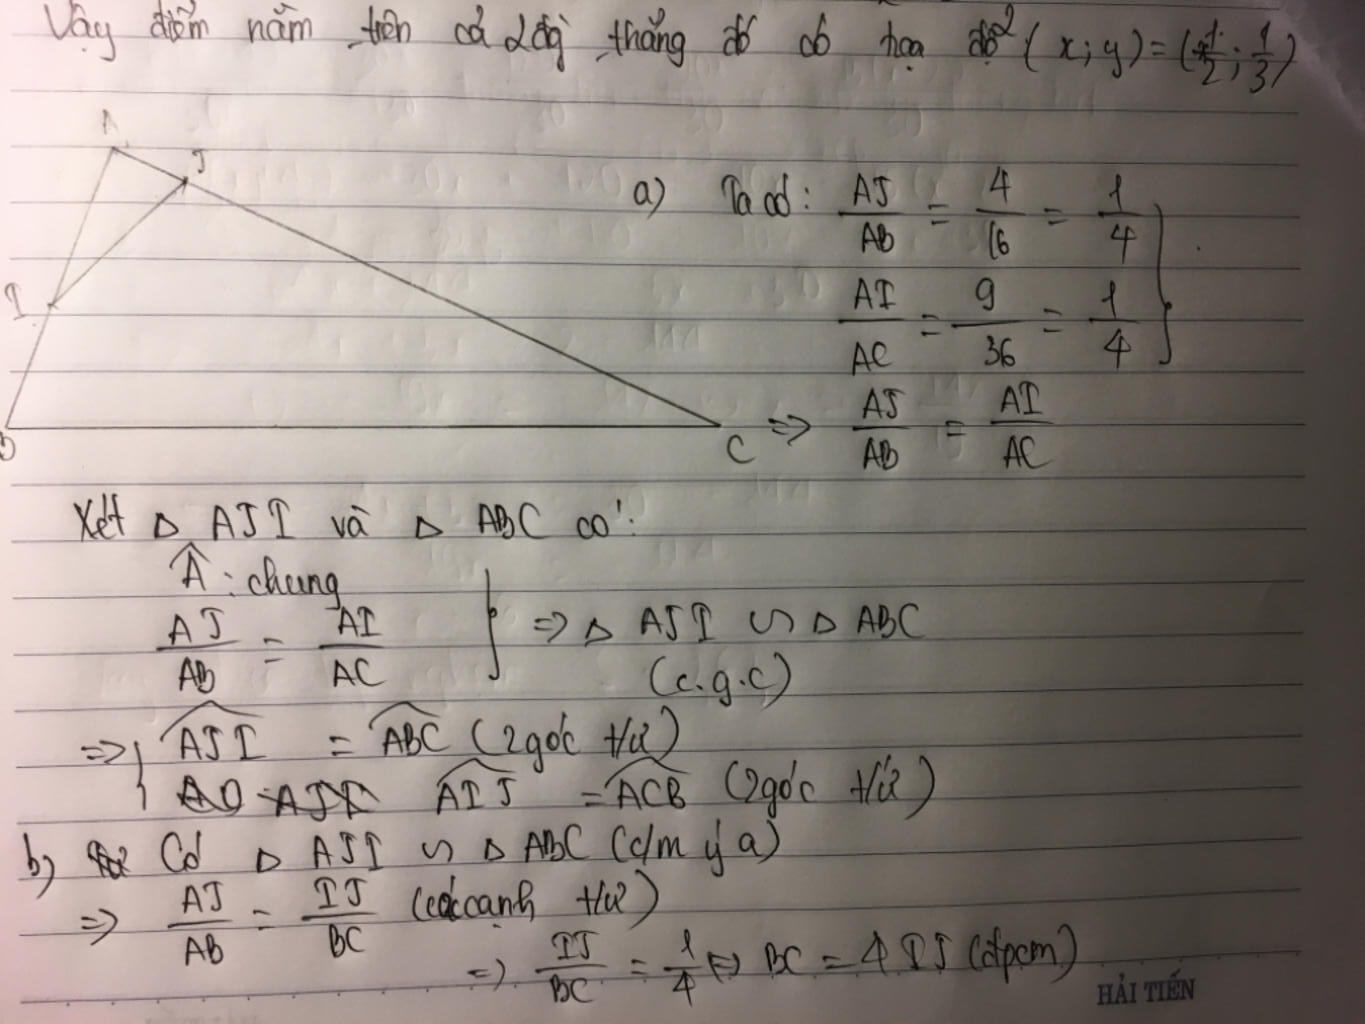 Vậy điểm nằm trên cả 2 đg thẳng đó có tọa độ (x; y) = (1/2; 1/3)
A
J
I
B
C
a) Ta có: AJ/AB = 4/16 = 1/4
AI/AC = 9/36 = 1/4
=> AJ/AB = AI/AC
Xét Δ AJI và Δ ABC có:
Â: chung
AJ/AB = AI/AC } => Δ AJI ∽ Δ ABC
(c.g.c)
=> { ∠AJI = ∠ABC (2 góc t/ứ)
∠AIJ = ∠ACB (2 góc t/ứ)
b) Có Δ AJI ∽ Δ ABC (c/m ý a)
=> AJ/AB = IJ/BC (các cạnh t/ứ)
=> IJ/BC = 1/4 => BC = 4 IJ (đpcm)
HẢI TIẾN